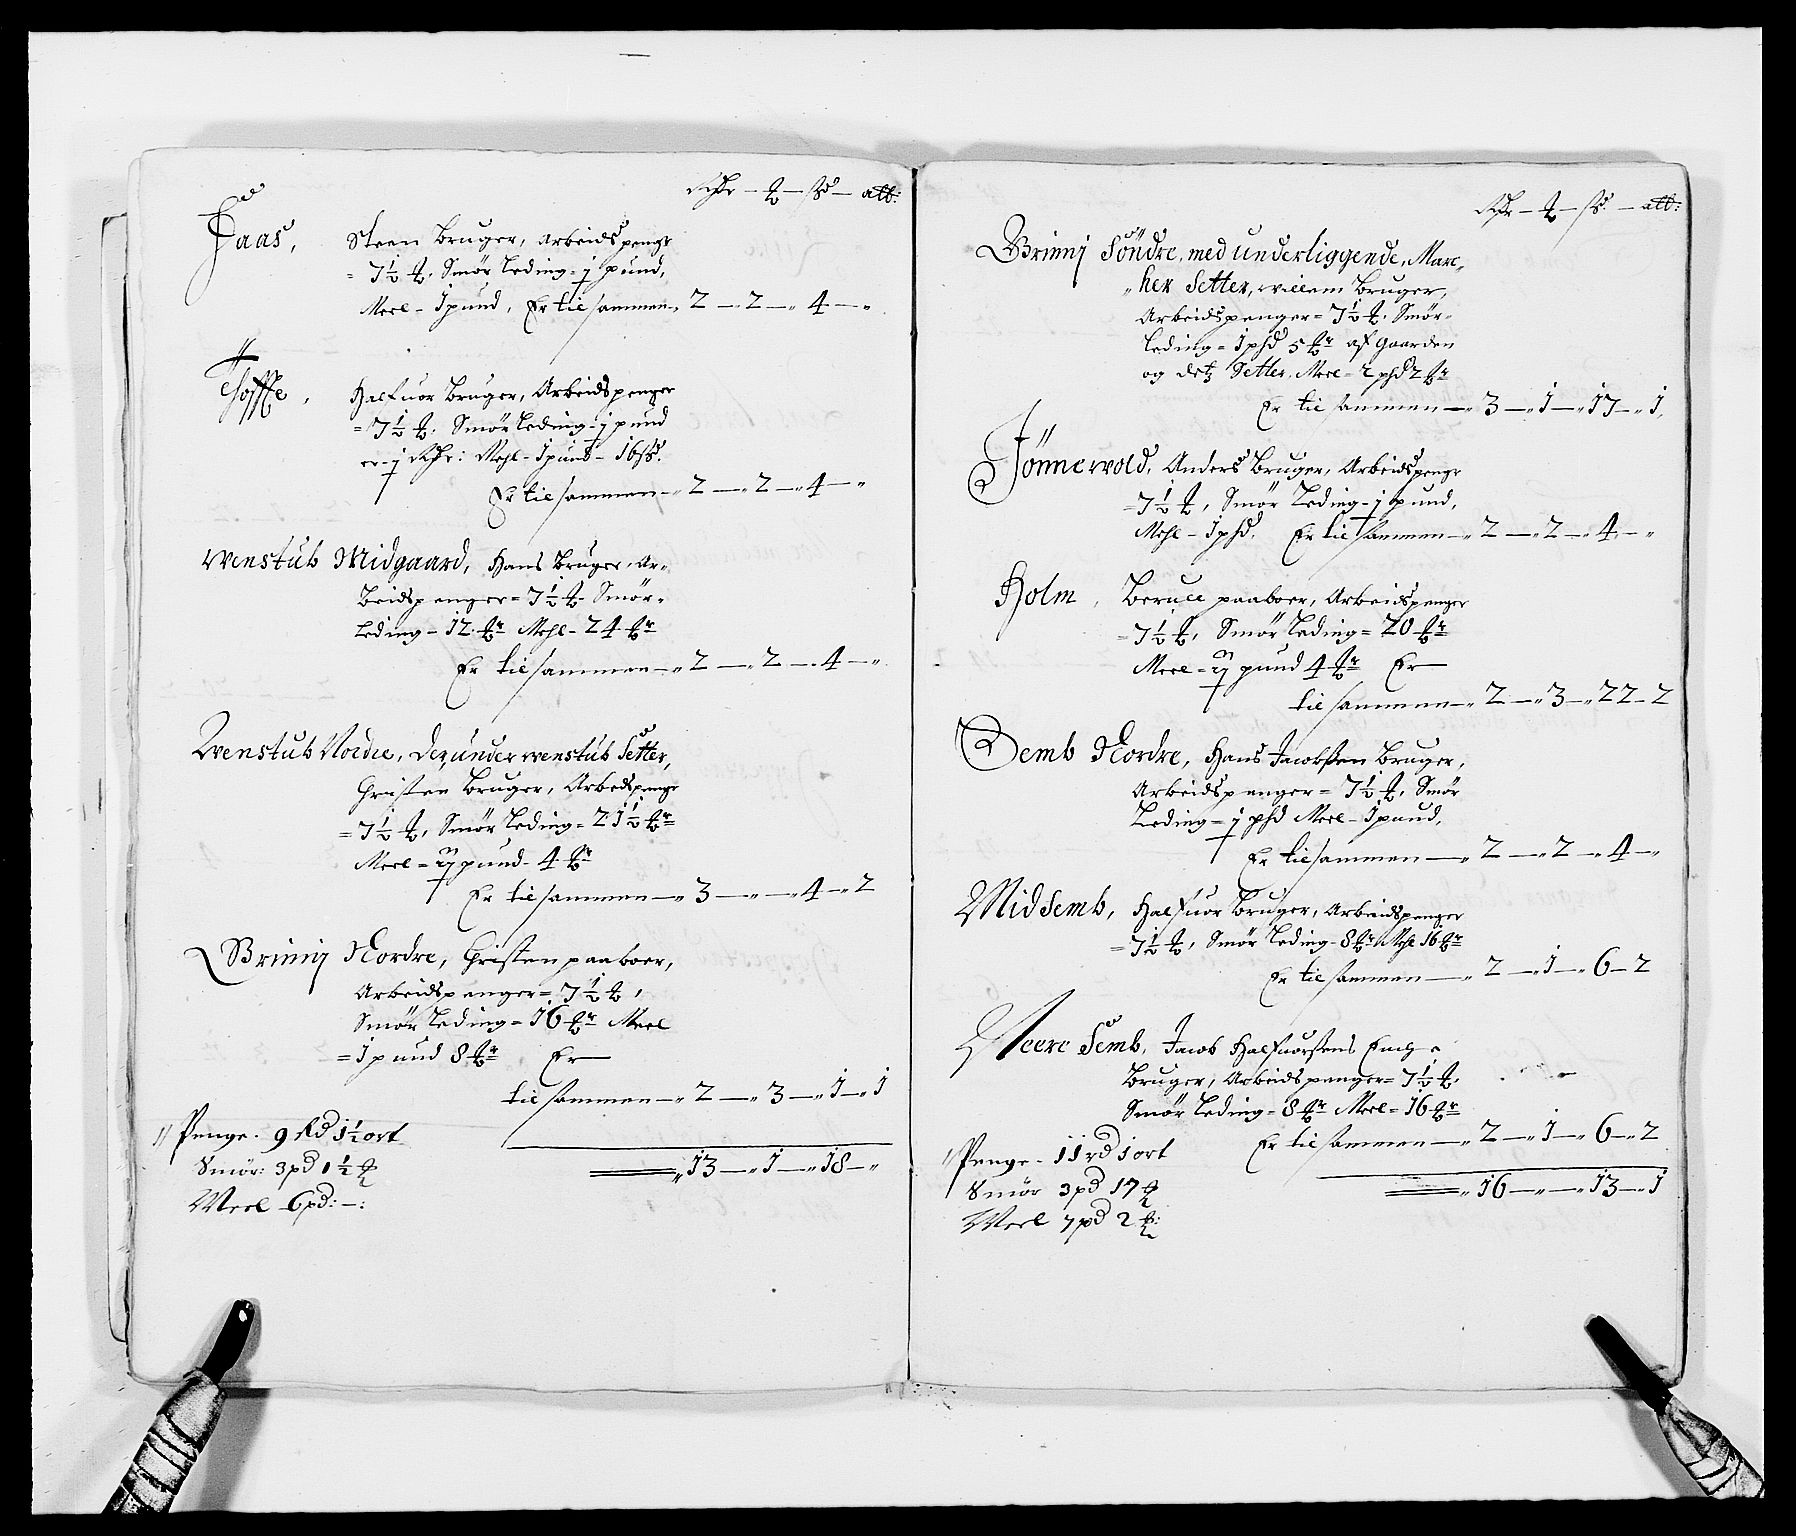 Rdr — ₰ — ss — alb:
Faas, Steen Bruger, Arbeids penge
= 7½ ₰. Smør Leding = j pund,
Meel - 1 pund, Er tilsammen „ 2 — „ 2 — „ 4 — „
Toffte, Halfuor Bruger, Arbeidspenger
= 7½ ₰. Smør Leding - j pund
er - j Rdr: Mehl - 1 pund - 16 ss.
Er tilsammen — „ 2 — „ 2 — „ 4 — „
Wenstub Midgaard, Hans Bruger, Ar-
beidspenger = 7½ ₰. Smør-
leding - 12 ₰r Mehl - 24 ₰r
Er tilsammen — „ 2 — „ 2 — „ 4 — „
Wenstub Nordre, Der under Wenstub Setter,
Christen Bruger, Arbedspenge
= 7½ ₰, Smør Leding = 21½ ₰r
Meel = ij pund - 4 ₰r
Er tilsammen — „ 3 — „ — „ 4 — „ 2
Brinnj Nordre, Christen paaboer,
Arbeidspenger = 7½ ₰,
Smør Leding = 16 ₰r Meel
= 1 pund 8 ₰r Er —
tilsammen — „ 2 — „ 3 — „ 1 — „ 1
„ 13 — „ 1 — „ 18 — „
Penge - 9 Rd 1½ ort
Smør: 3 pd 1½ ₰
Meel 6 pd: — :
Rdr — ₰ — ss. — alb:
Brinnj Söndre, med underliggende, Marc-
her Setter, Willem Bruger,
Arbeidspenger = 7½ ₰. Smør-
leding = 1 phd 5 ₰r af Gaarden
og detz Setter, Meel = 2 phd 2 ₰r
Er tilsammen — „ 3 — „ 1 — „ 17 — „ 1
Tönnewold, Anders Bruger, Arbeidspenge
= 7½ ₰, Smør Leding - j pund,
Mehl - 1 phd. Er tilsammen — „ 2 — „ 2 — „ 4 — „
Holm, paaboer, Arbeidspenger
= 7½ ₰, Smør Leding = 20 ₰r
Meel = ij pund 4 ₰r Er —
tilsammen — „ 2 — „ 3 — „ 22 - 2
Semb Nordre, Hans Jacobsen Bruger,
Arbeidspenger = 7½ ₰, Smør
Leding = j phd Meel - 1 pund,
Er tilsammen — „ 2 — „ 2 — „ 4 — „
Mid Semb, Halfuor Bruger, Arbeidspenger
= 7½ ₰, Smør Leding - 8 ₰r Mehl 16 ₰r
Er tilsammen — „ 2 — „ 1 — „ 6 — 2
Neere Semb, Jacob Halfuorsens
Bruger, Arbeidspenger = 7½ ₰.
Smør Leding = 8 ₰r Meel = 16 ₰r
Er tilsammen — „ 2 — „ 1 — „ 6 — „ 2
„ 16 — „ — „ 13 — „ 1
Penge - 11 rd 1 ort
Smør 3 pd 17 ₰
Meel 7 pd 2 ₰: